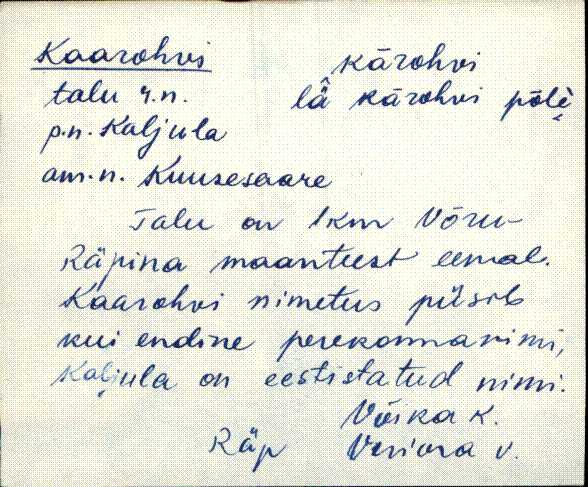 Kaarohvi kārohvi
talu r.n. lǟ kārohvi pōlè
p.n. Kaljula
am.n. Kuusesaare
Talu on 1km Võru-
Räpina maanteest eemal.
Kaarohvi nimetus püsib
kui endine perekonnanimi,
Kaljula on eestistatud nimi.
Võika k.
Räp Veriora v.